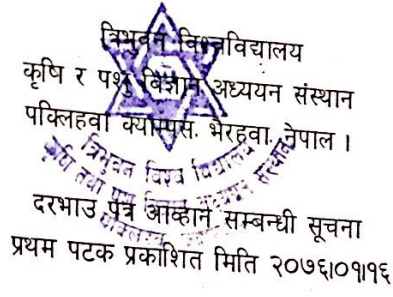 त्रिभुवन विश्वविद्यालय
कृषि र पशु विज्ञान अध्ययन संस्थान
पक्लिहवा क्याम्पस, भैरहवा, नेपाल ।
त्रिभुवन विश्व विद्यालय
कृषि तथा पशु विज्ञान अध्ययन संस्थान
दरभाउ पत्र आव्हान सम्बन्धी सूचना
प्रथम पटक प्रकाशित मिति २०७६।०१।१६